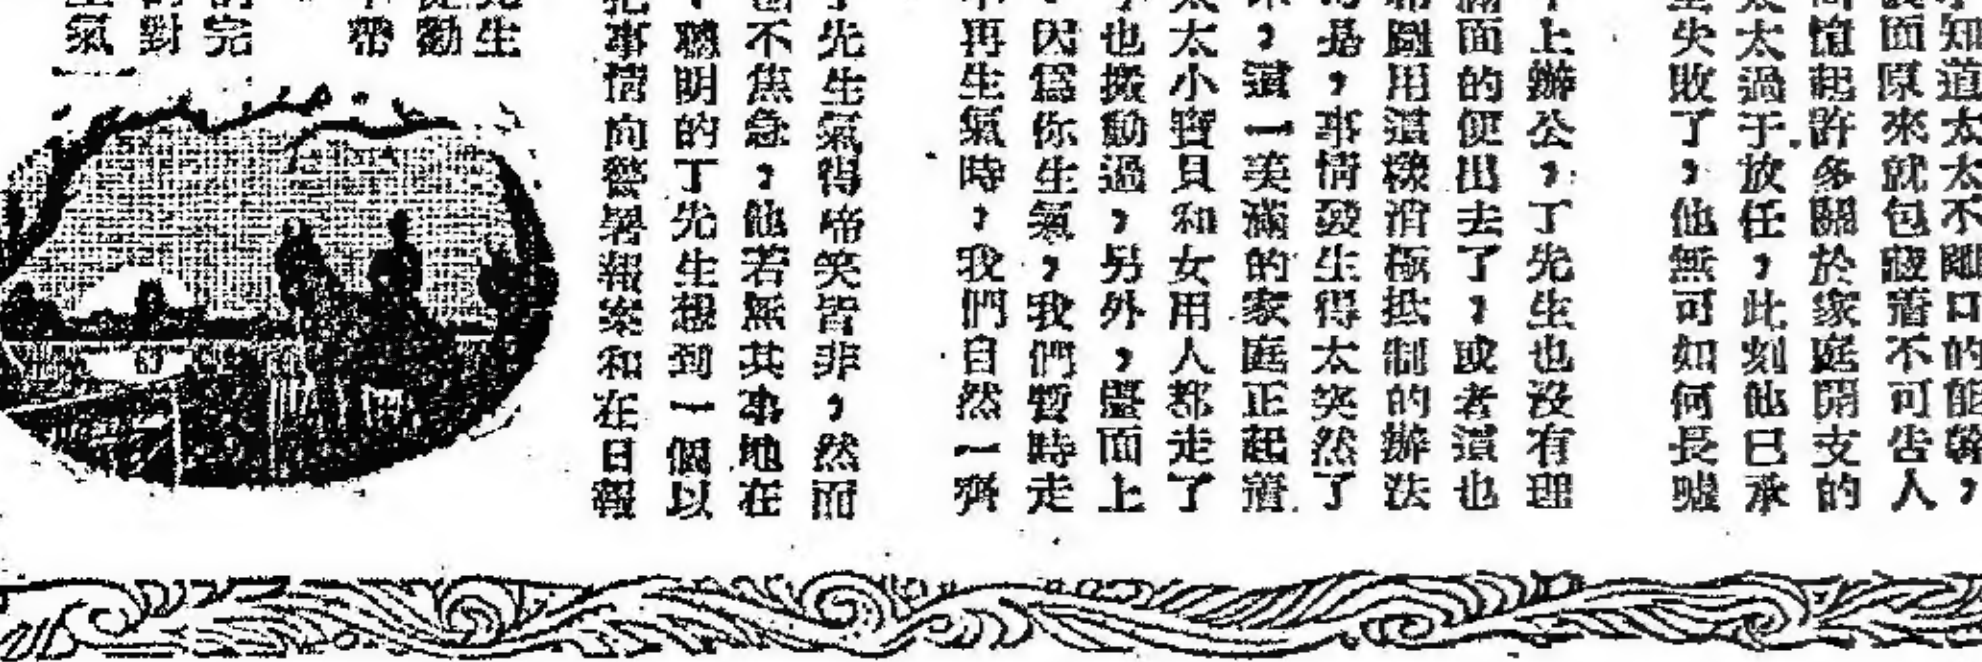 知道太太不離口的能幹，
面原來就包藏着不可告人
起許多關於家庭開支的
太過于放任，此刻他已承
失敗了，他無可如何長噓
上辦公，丁先生也沒有理
面的便出去了，或者這也
用這樣消極抵制的辦法
是，事情發生得太突然了
，這一美滿的家庭正起着
太小寶貝和女用人都走了
也搬動過，另外，壁面上
因爲你生氣，我們暫時走
再生氣時，我們自然一齊
先生氣得啼笑皆非，然而
不焦急，他若無其事地在
聰明的丁先生想到一個以
事情向警署報案和在日報
先生
勸
帶
完
對
氣